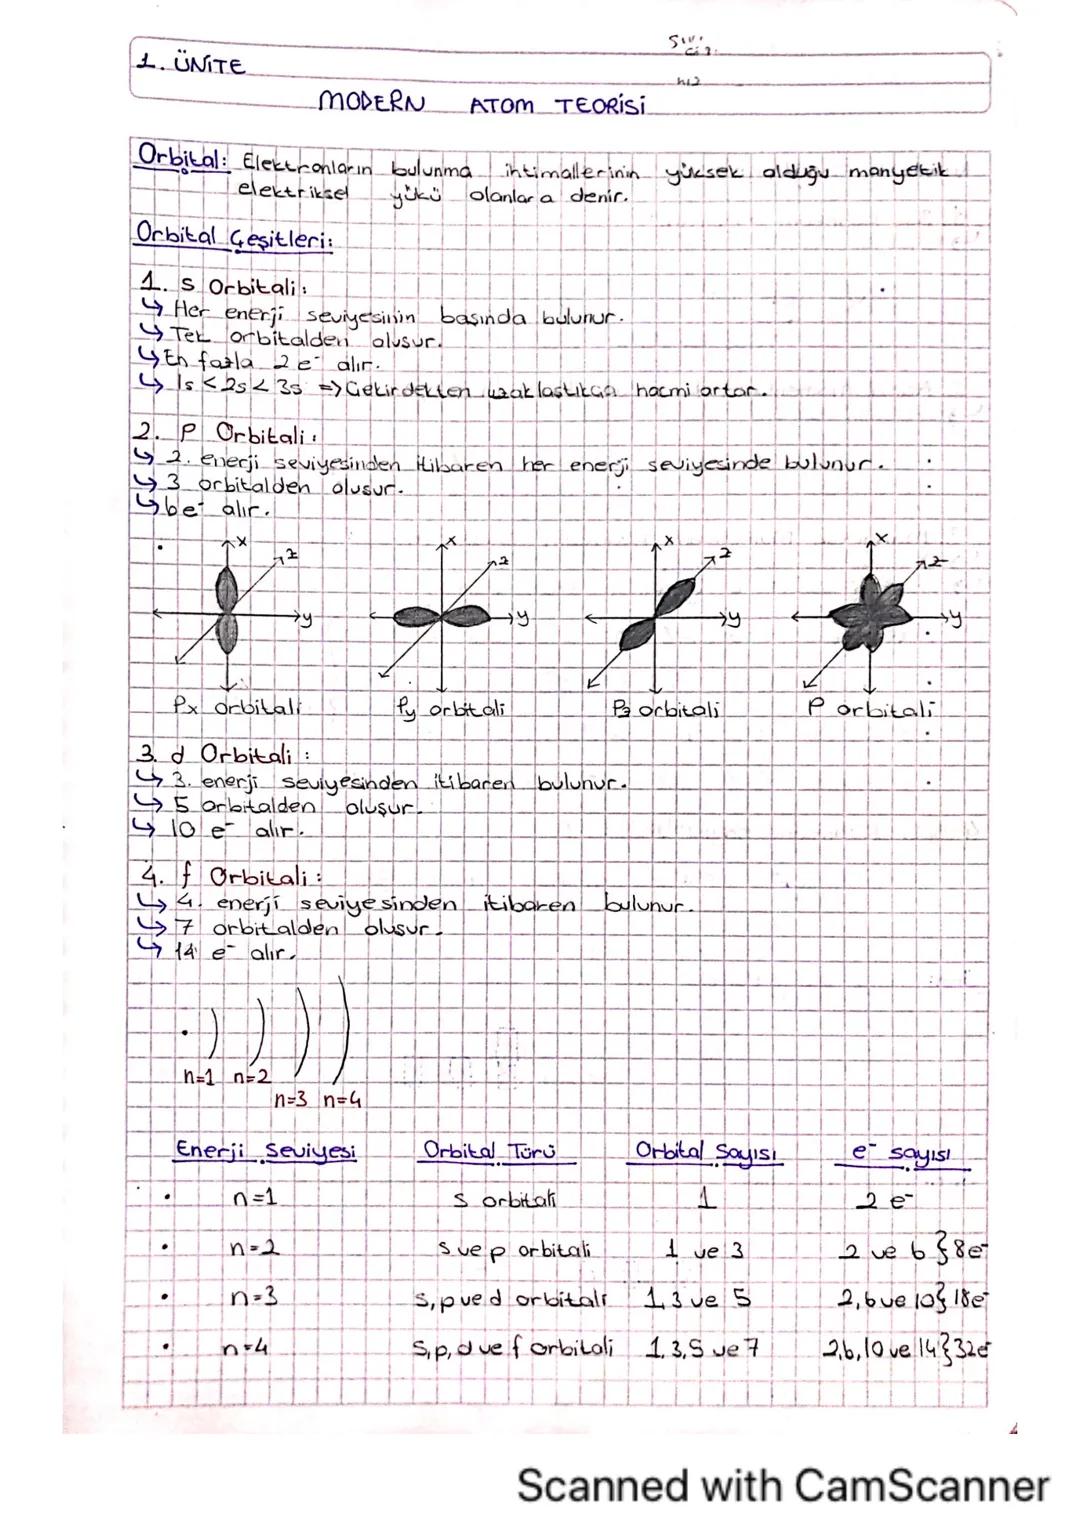 1. ÜNİTE
MODERN ATOM TEORİSİ
Orbital: Elektronların bulunma ihtimallerinin yüksek olduğu manyetik
elektriksel yükü olanlara denir.
Orbital Çeşitleri:
1. s Orbitali:
↳ Her enerji seviyesinin başında bulunur.
↳ Tek orbitalden oluşur.
↳ En fazla 2 e⁻ alır.
↳ 1s < 2s < 3s => Çekirdekten uzaklaştıkça hacmi artar.
2. P Orbitali:
↳ 2. enerji seviyesinden itibaren her enerji seviyesinde bulunur.
↳ 3 orbitalden oluşur.
↳ 6e⁻ alır.
x z y x z y x z y x z y
Px orbitali Py orbitali Pz orbitali P orbitali
3. d Orbitali:
↳ 3. enerji seviyesinden itibaren bulunur.
↳ 5 orbitalden oluşur.
↳ 10 e⁻ alır.
4. f Orbitali:
↳ 4. enerji seviyesinden itibaren bulunur.
↳ 7 orbitalden oluşur.
↳ 14 e⁻ alır.
n=1 n=2
n=3 n=4
Enerji Seviyesi Orbital Türü Orbital Sayısı e⁻ sayısı
• n=1 s orbitali 1 2 e⁻
• n=2 s ve p orbitali 1 ve 3 2 ve 6 } 8e⁻
• n=3 s, p ve d orbitali 1,3 ve 5 2,6 ve 10 } 18e⁻
• n=4 s, p, d ve f orbitali 1,3,5 ve 7 2,6,10 ve 14 } 32e⁻
Scanned with CamScanner